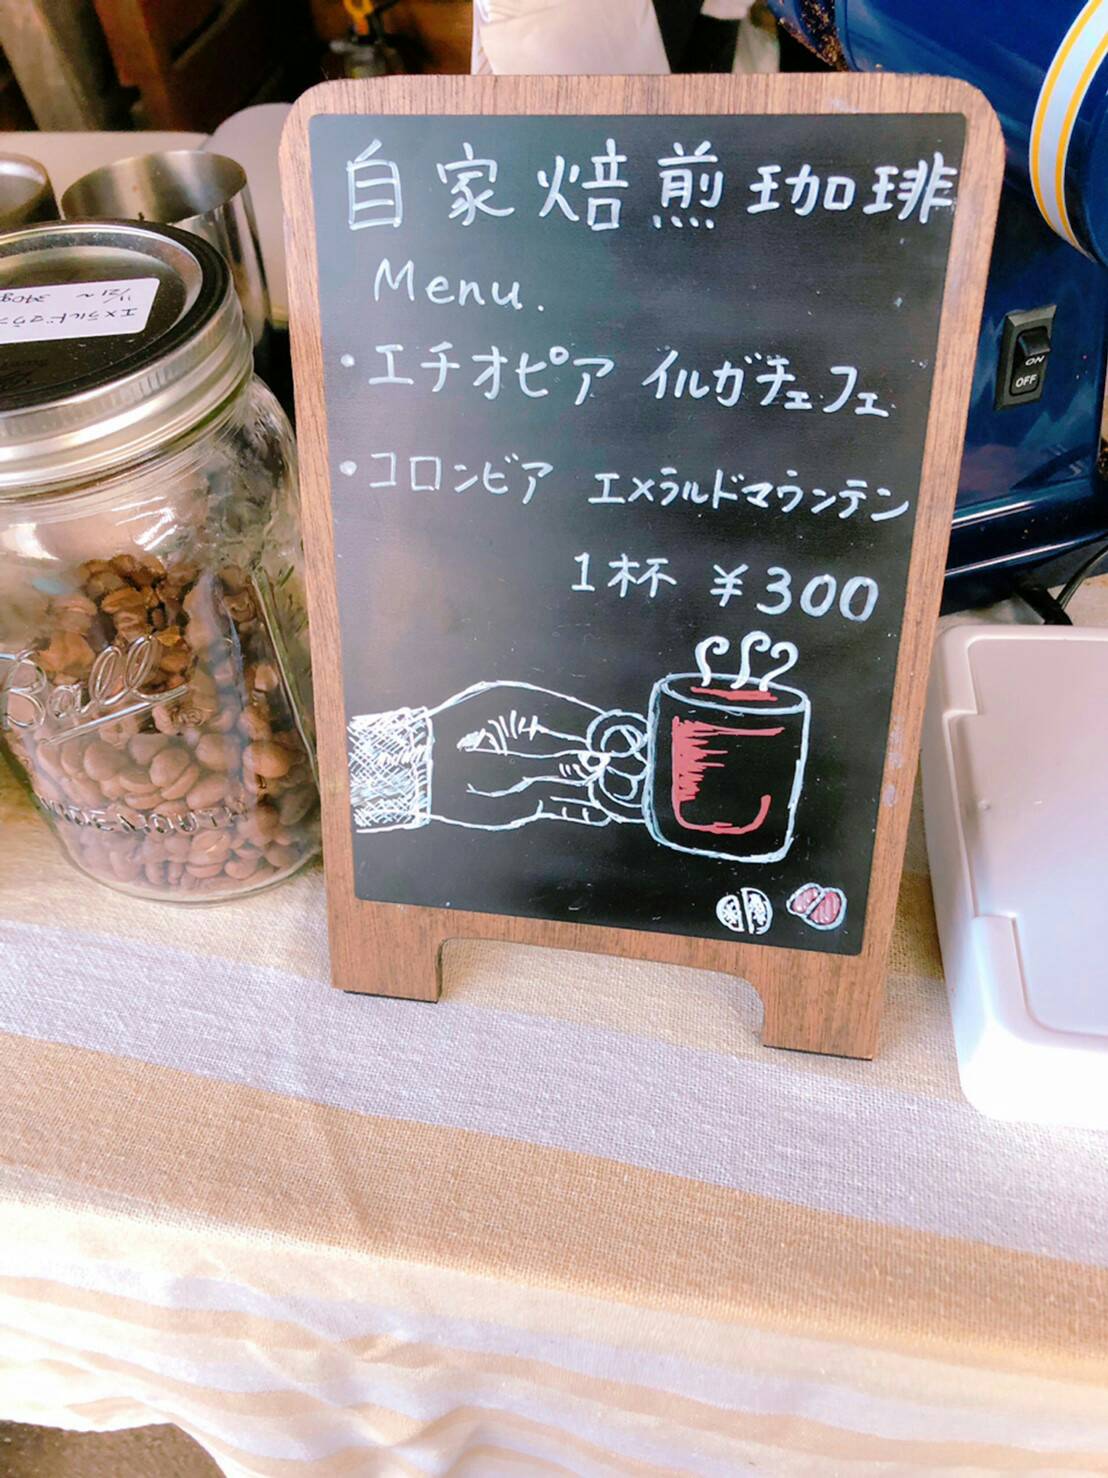 自家焙煎珈琲
Menu.
・エチオピア イルガチェフェ
・コロンビア エメラルドマウンテン
1杯 ¥300
エメラルドマウ
11/21~ 340g
Ball
WIDE MOUTH
ON
OFF